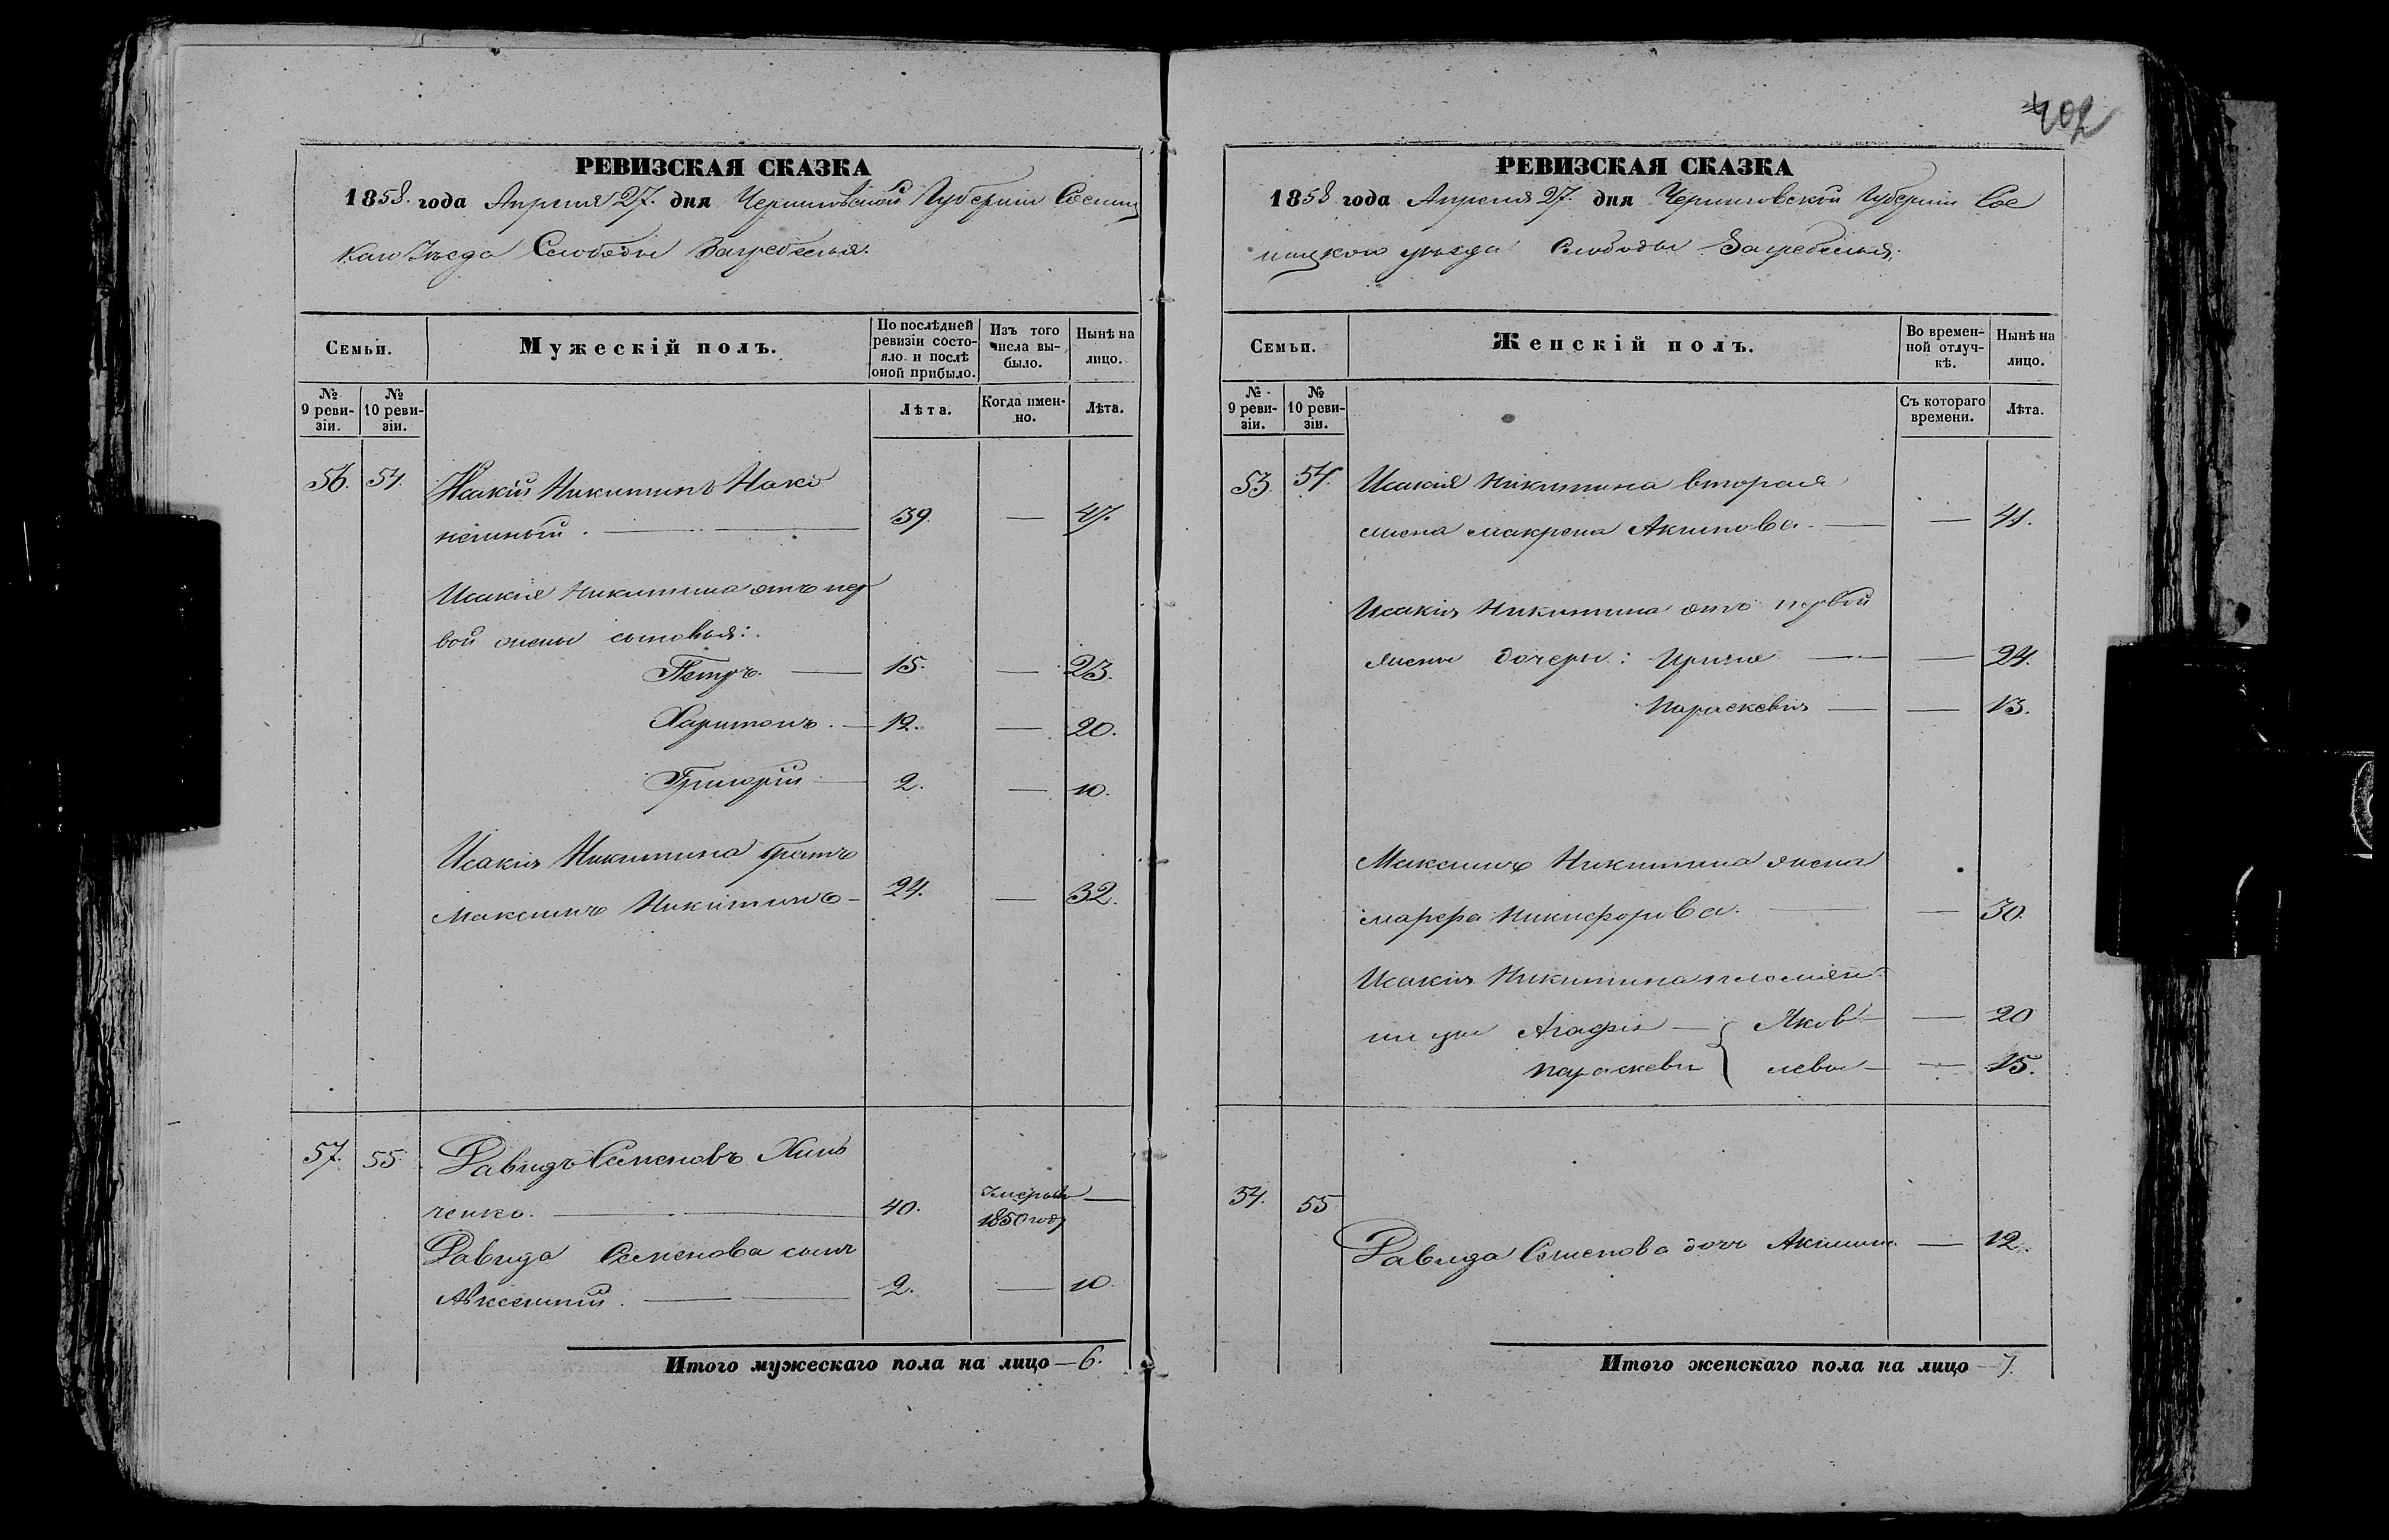 402
РЕВИЗСКАЯ СКАЗКА
1858. года Апреля 27. дня Черниговской Губерніи Сосниц
каго Уезда Слободы Загребелья.
Семьи.
Мужескій полъ.
По послѣдней ревизіи состояло и послѣ оной прибыло.
Изъ того числа выбыло.
Нынѣ на лицо.
№ 9 ревизіи.
№ 10 ревизіи.
Лѣта.
Когда именно.
Лѣта.
56. 54. Исакій Никитинъ Нако
нечный. — 39. — 47.
Исакія Никитина отъ пер
вой жены сыновья:
Петръ. — 15. — 23.
Харитонъ. — 12. — 20.
Григорій — 2. — 10.
Исакія Никитина братъ
Максимъ Никитинъ — 24. — 32.
57. 55. Давидъ Семеновъ Хиль
ченко. — 40. умеръ 1850 году —
Давида Семенова сынъ
Авксентій. — 2. — 10.
Итого мужескаго пола на лицо — 6.
РЕВИЗСКАЯ СКАЗКА
1858 года Апреля 27. дня Черниговской Губерніи Сос
ницкого уезда Слободы Загребелья.
Семьи.
Женскій полъ.
Во временной отлучкѣ.
Нынѣ на лицо.
№ 9 ревизіи.
№ 10 ревизіи.
Съ котораго времени.
Лѣта.
53. 54. Исакія Никитина вторая
жена Макрена Акимова. — — 41.
Исакія Никитина отъ первой
жены дочеры: Ирина — — 24.
Параскевія — — 13.
Максима Никитина жена
Марфа Никифорова. — — 30.
Исакія Никитина племян
ницы Агафія — { Яков — — 20
Параскева { левы — — 15.
54. 55 Давида Семенова дочь Акилина — 12.
Итого женскаго пола на лицо — 7.